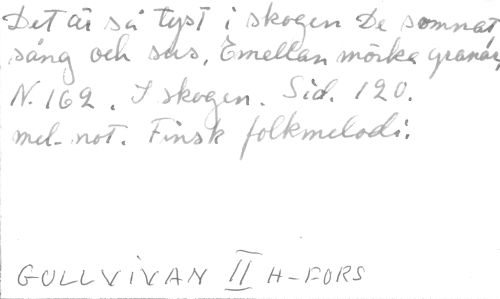 Det är så tyst i skogen De somnat,
sång och sus, Emellan mörka granar,
N. 162. I skogen. Sid. 120.
mel. not. Finsk folkmelodi.
GULLVIVAN II H-FORS